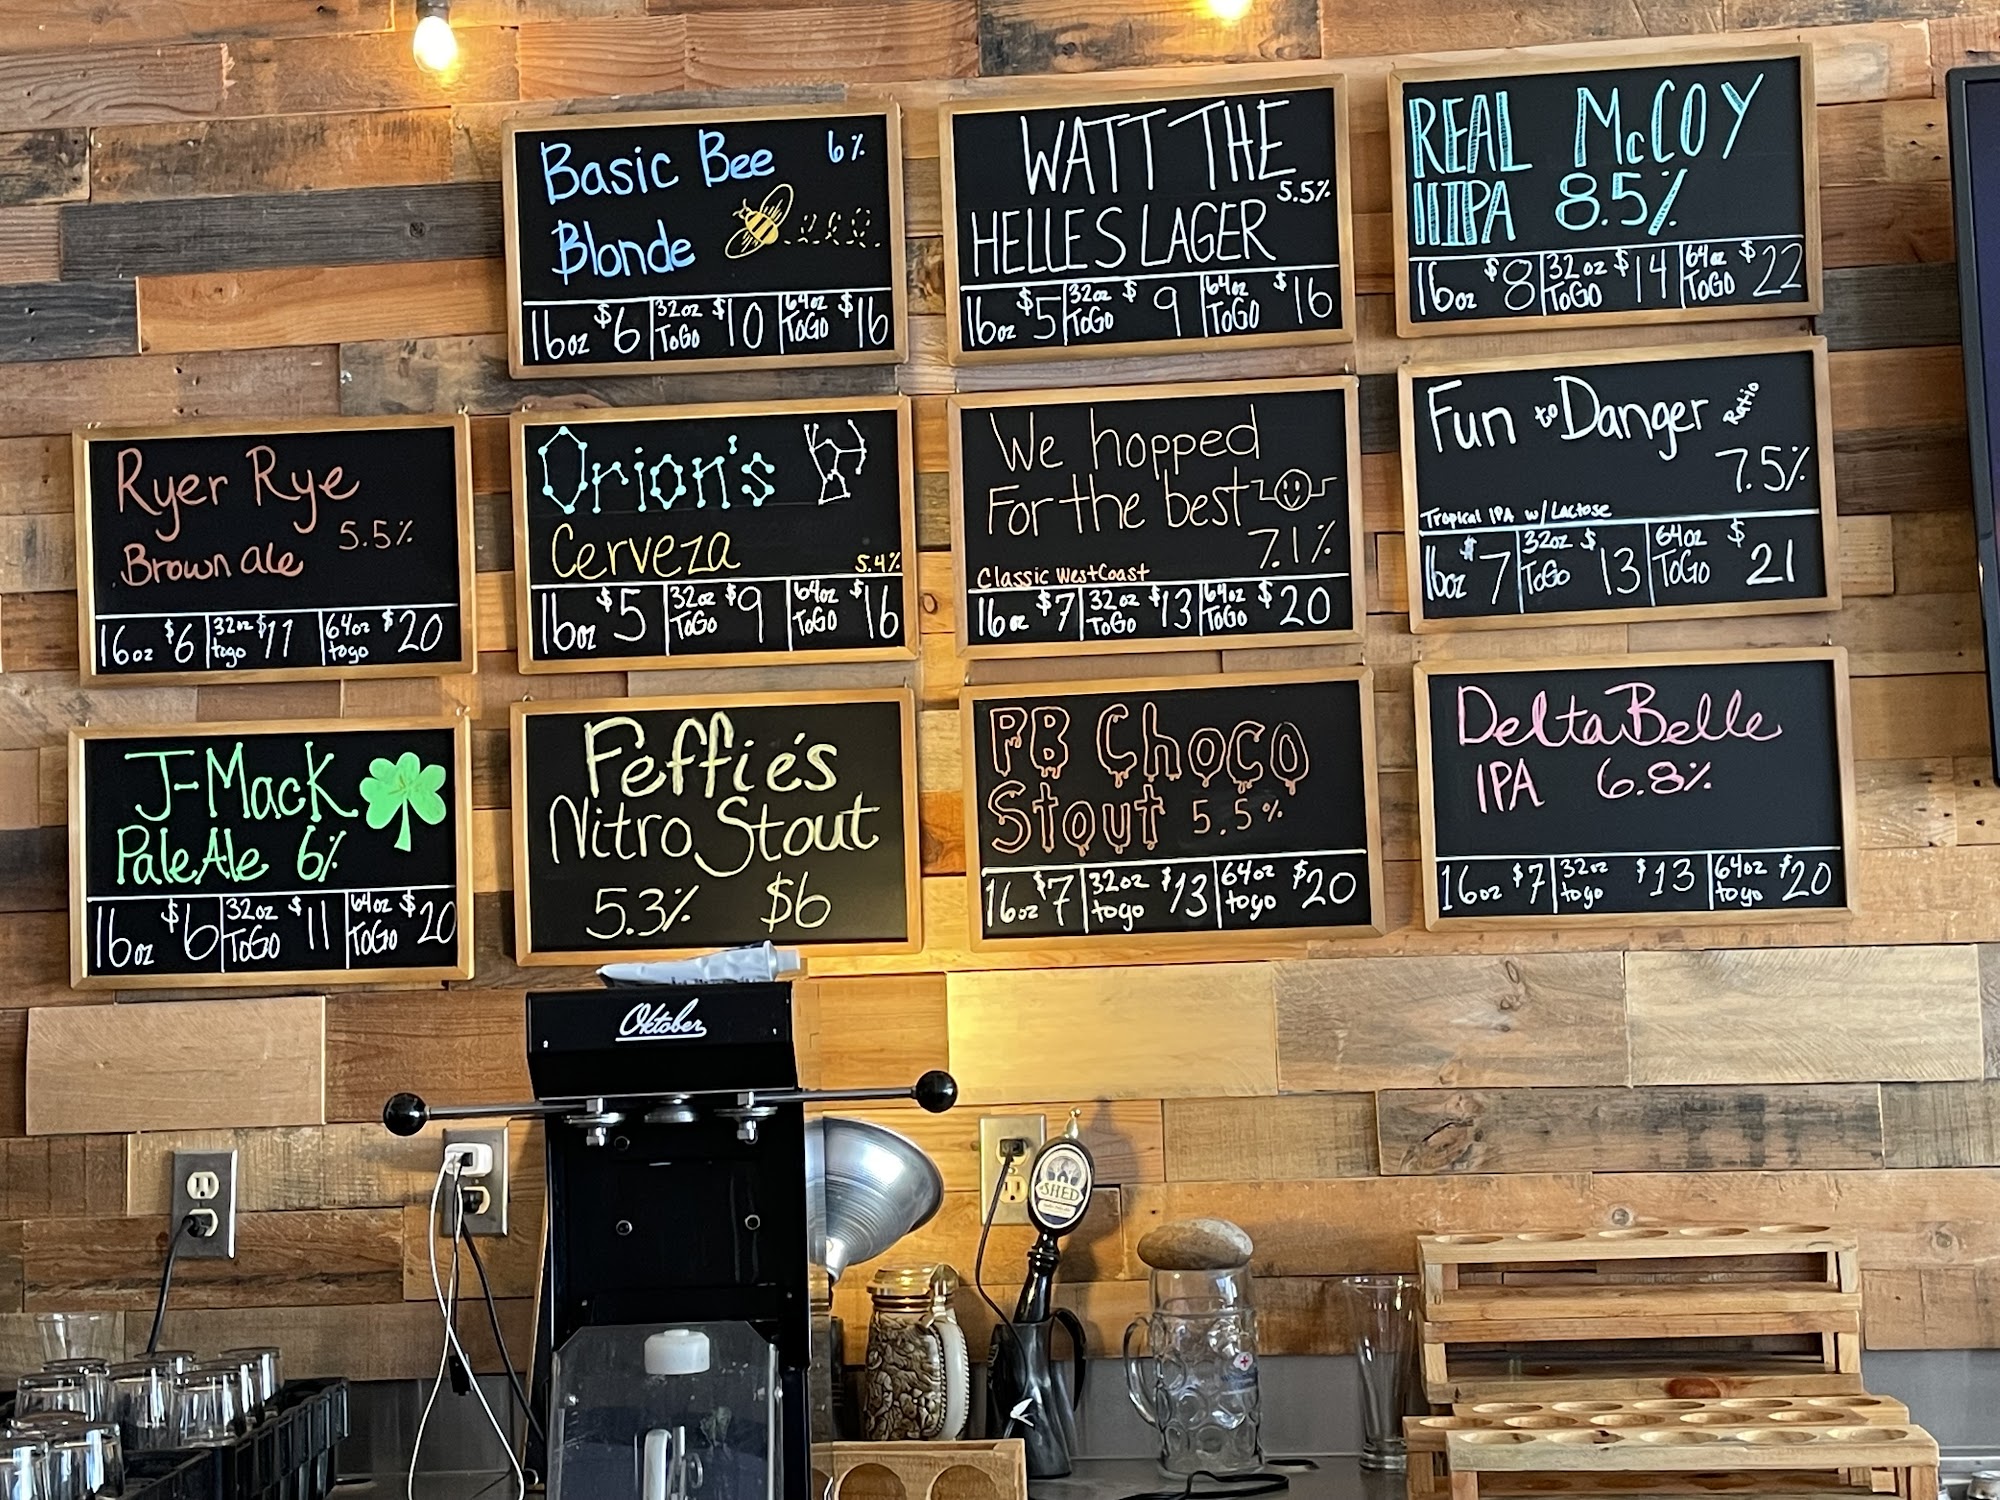 Basic Bee 6%
Blonde
16oz $6 32oz ToGo $10 64oz ToGo $16
WATT THE
HELLES LAGER 5.5%
16oz $5 32oz ToGo $9 64oz ToGo $16
REAL McCOY
IIIPA 8.5%
16oz $8 32oz ToGo $14 64oz ToGo $22
Ryer Rye
Brown ale 5.5%
16oz $6 32oz togo $11 64oz togo $20
Orion's
Cerveza 5.4%
16oz $5 32oz ToGo $9 64oz ToGo $16
We hopped
For the best
7.1%
Classic WestCoast
16oz $7 32oz ToGo $13 64oz ToGo $20
Fun to Danger Ratio
7.5%
Tropical IPA w/ Lactose
16oz $7 32oz ToGo $13 64oz ToGo $21
J-Mack
Pale Ale 6%
16oz $6 32oz ToGo $11 64oz ToGo $20
Feffie's
Nitro Stout
5.3% $6
PB Choco
Stout 5.5%
16oz $7 32oz togo $13 64oz togo $20
Delta Belle
IPA 6.8%
16oz $7 32oz togo $13 64oz togo $20
Oktober
SHED